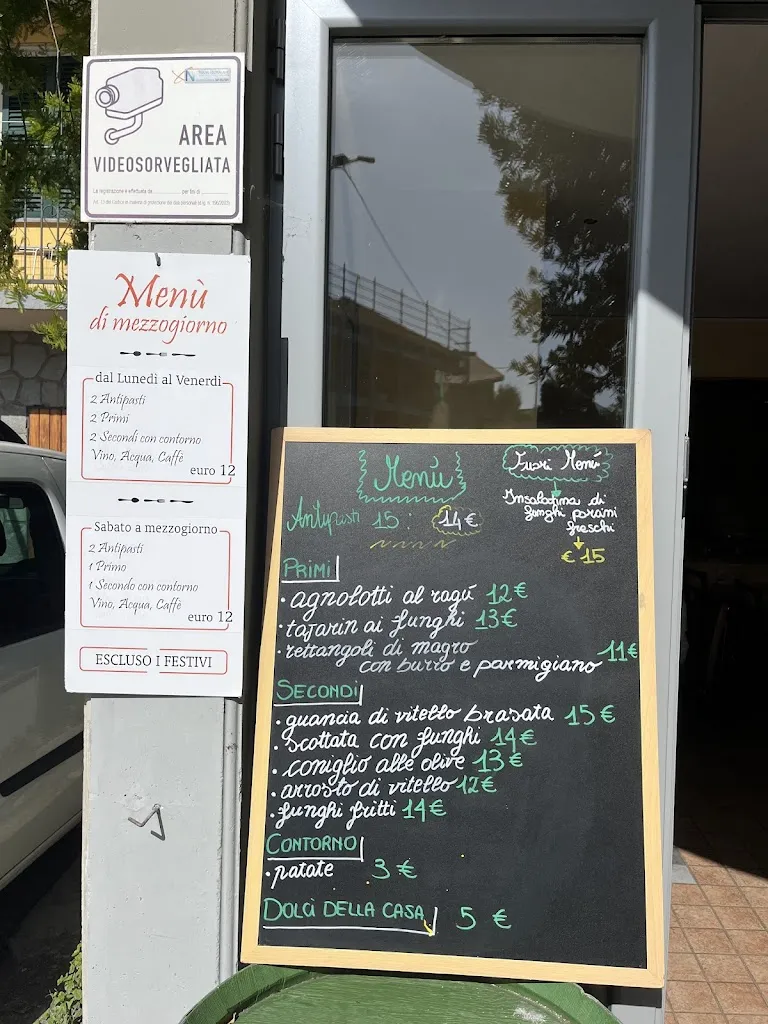 AREA
VIDEOSORVEGLIATA
La registrazione è effettuata da ........ per fini di ........
Menù
di mezzogiorno
dal Lunedì al Venerdì
2 Antipasti
2 Primi
2 Secondi con contorno
Vino, Acqua, Caffè
euro 12
Sabato a mezzogiorno
2 Antipasti
1 Primo
1 Secondo con contorno
Vino, Acqua, Caffè
euro 12
ESCLUSO I FESTIVI
Menù
Antipasti 15: 14€
Fuori Menù
Insalatina di
funghi porcini
freschi
€ 15
PRIMI
• agnolotti al ragù 12€
• tajarin ai funghi 13€
• rettangoli di magro
con burro e parmigiano 11€
SECONDI
• guancia di vitello brasata 15€
• scottata con funghi 14€
• coniglio alle olive 13€
• arrosto di vitello 12€
• funghi fritti 14€
CONTORNO
• patate 3€
DOLCI DELLA CASA 5 €